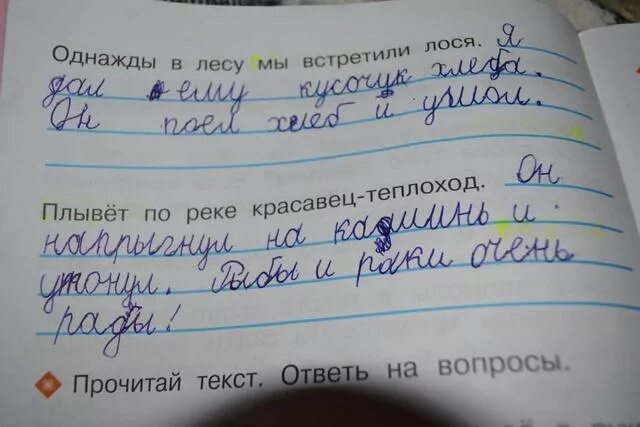 Однажды в лесу мы встретили лося. Я
дал ему кусочук хлеба.
Он поел хлеб и ушол.
Плывёт по реке красавец-теплоход. Он
напрыгнул на каминь и
утонул. Рыбы и раки очень
рады!
Прочитай текст. Ответь на вопросы.